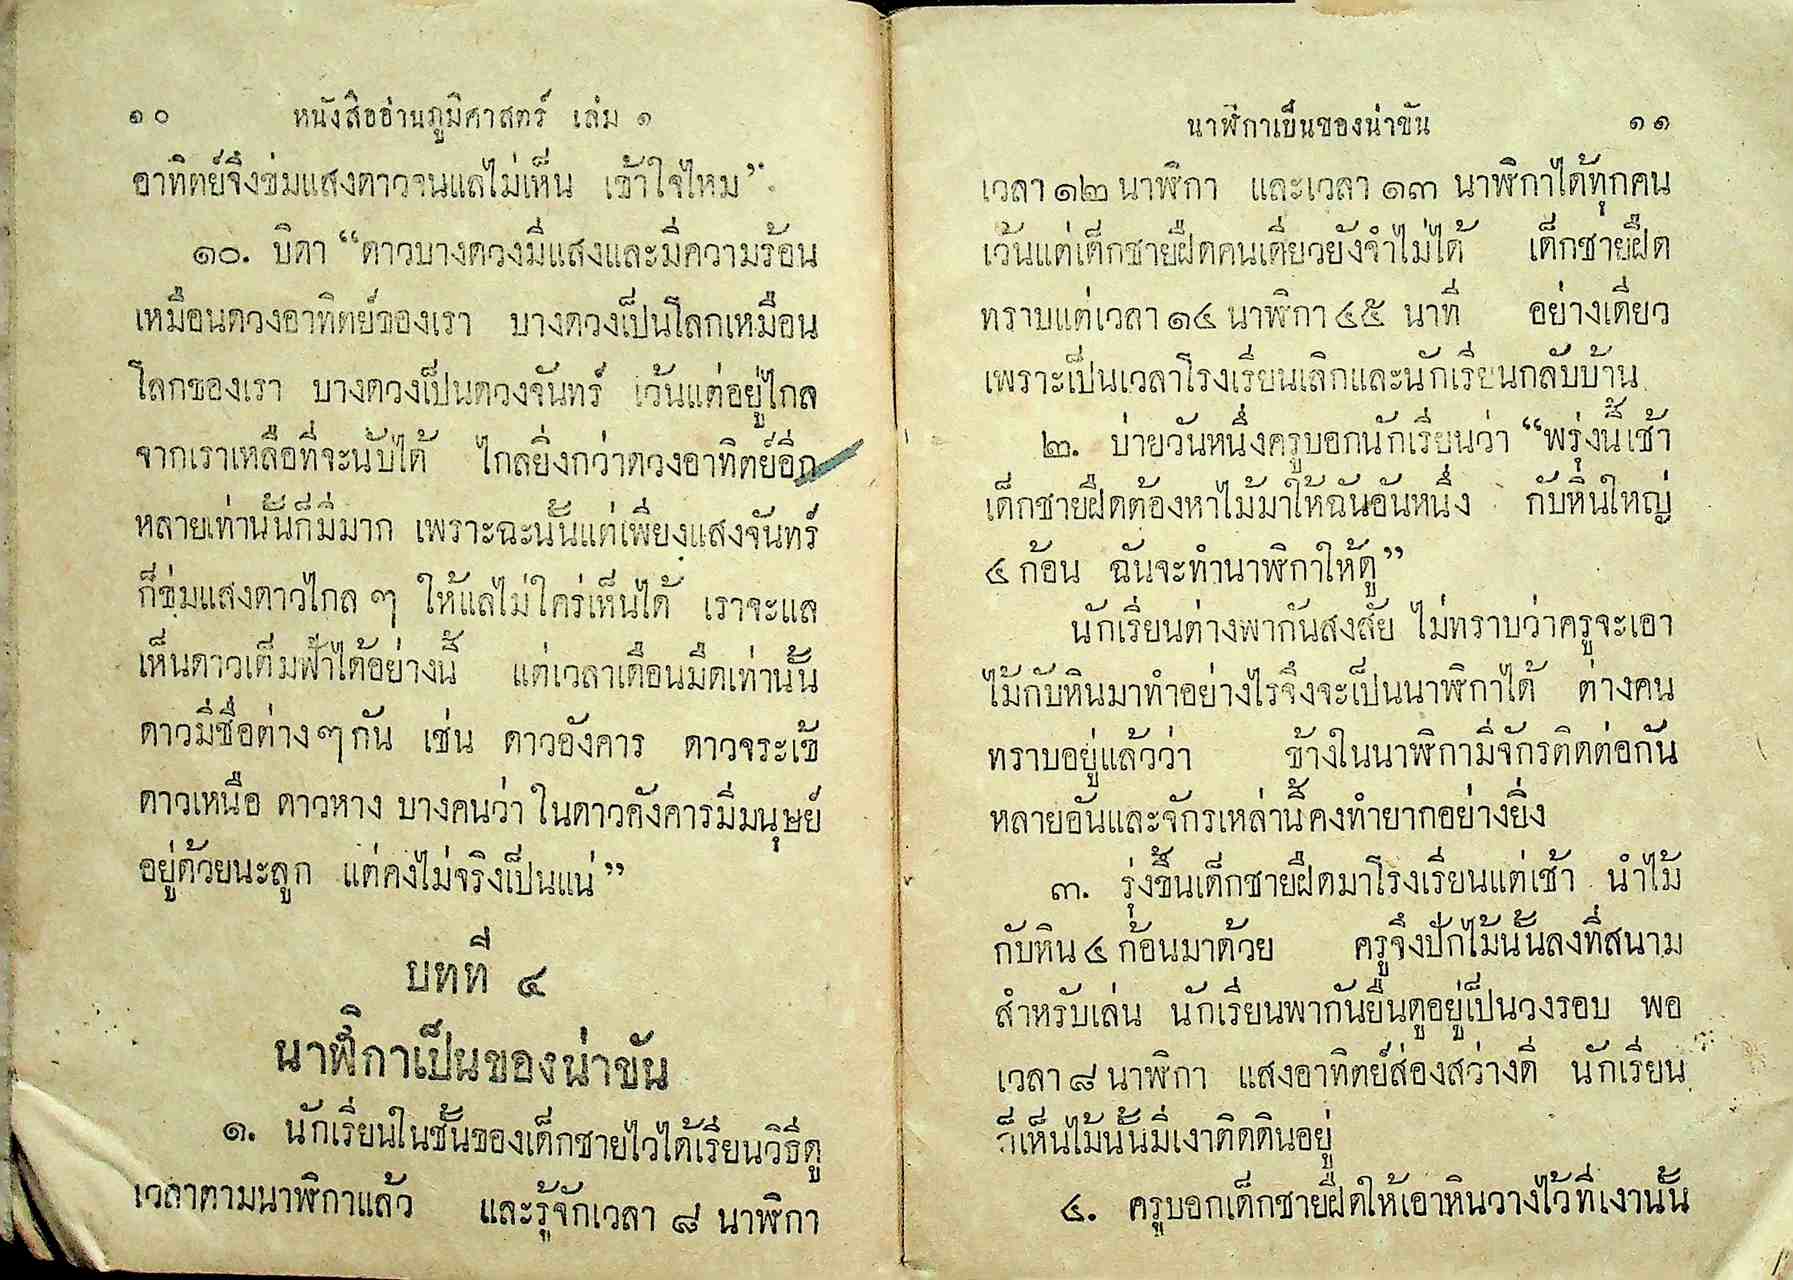 ๑๐ หนังสืออ่านภูมิศาสตร์ เล่ม ๑
อาทิตย์จึงข่มแสงดาวจนแลไม่เห็น เข้าใจไหม”
๑๐. บิดา “ดาวบางดวงมีแสงและมีความร้อน
เหมือนดวงอาทิตย์ของเรา บางดวงเป็นโลกเหมือน
โลกของเรา บางดวงเป็นดวงจันทร์ เว้นแต่อยู่ไกล
จากเราเหลือที่จะนับได้ ไกลยิ่งกว่าดวงอาทิตย์อีก
หลายเท่านั้นก็มีมาก เพราะฉะนั้นแต่เพียงแสงจันทร์
ก็ข่มแสงดาวไกล ๆ ให้แลไม่ใคร่เห็นได้ เราจะแล
เห็นดาวเต็มฟ้าได้อย่างนี้ แต่เวลาเดือนมืดเท่านั้น
ดาวมีชื่อต่าง ๆ กัน เช่น ดาวอังคาร ดาวจระเข้
ดาวเหนือ ดาวหาง บางคนว่า ในดาวอังคารมีมนุษย์
อยู่ด้วยนะลูก แต่คงไม่จริงเป็นแน่”
บทที่ ๔
นาฬิกาเป็นของน่าขัน
๑. นักเรียนในชั้นของเด็กชายไวได้เรียนวิธีดู
เวลาตามนาฬิกาแล้ว และรู้จักเวลา ๘ นาฬิกา
นาฬิกาเป็นของน่าขัน ๑๑
เวลา ๑๒ นาฬิกา และเวลา ๑๓ นาฬิกาได้ทุกคน
เว้นแต่เด็กชายฝืดคนเดียวยังจำไม่ได้ เด็กชายฝืด
ทราบแต่เวลา ๑๔ นาฬิกา ๔๕ นาที อย่างเดียว
เพราะเป็นเวลาโรงเรียนเลิกและนักเรียนกลับบ้าน
๒. บ่ายวันหนึ่งครูบอกนักเรียนว่า “พรุ่งนี้เช้า
เด็กชายฝืดต้องหาไม้มาให้ฉันอันหนึ่ง กับหินใหญ่
๔ ก้อน ฉันจะทำนาฬิกาให้ดู”
นักเรียนต่างพากันสงสัย ไม่ทราบว่าครูจะเอา
ไม้กับหินมาทำอย่างไรจึงจะเป็นนาฬิกาได้ ต่างคน
ทราบอยู่แล้วว่า ข้างในนาฬิกามีจักรติดต่อกัน
หลายอันและจักรเหล่านี้คงทำยากอย่างยิ่ง
๓. รุ่งขึ้นเด็กชายฝืดมาโรงเรียนแต่เช้า นำไม้
กับหิน ๔ ก้อนมาด้วย ครูจึงปักไม้นั้นลงที่สนาม
สำหรับเล่น นักเรียนพากันยืนดูอยู่เป็นวงรอบ พอ
เวลา ๘ นาฬิกา แสงอาทิตย์ส่องสว่างดี นักเรียน
ก็เห็นไม้นั้นมีเงาติดดินอยู่
๔. ครูบอกเด็กชายฝืดให้เอาหินวางไว้ที่เงานั้น